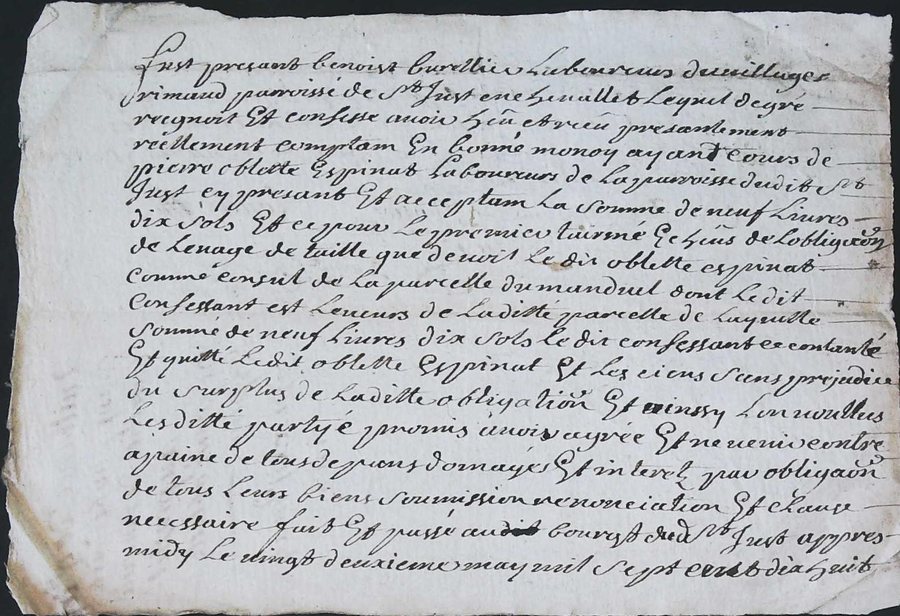 fust presant benoist burellier Laboureurs du villuge
rimaud parroisse de St Just en chevallet Lequel de gré
recgnoit Et confesse avoir heu et rèeu presantement
réellement comptam En bonne monoy ayant cours de
pierre oblette Espinat Laboureurs de La parroisse dudit St
Just cy presant Et acceptam La somme de neuf Livres
dix sols Et ce pour Le premier tairme Echeus de Lobligaon
de Levage de taille que devoit Le dit oblette espinat
comme consul de La parcelle du manduel dont Ledit
confessant est Leveurs de Laditte parcelle de Laquelle
somme de neuf Livres dix sols le dit confessant ce contante
Et quitte Ledit oblette Espinat Et Les ciens sans prejudice
du surplus de Laditte obligation Et ainssy Lon voullus
Lesditte partyé promis avoir agrée Et ne venir contre
apaine de tous depans domages Et interet par obligaon
de tous Leurs biens soumission renonciation Et clause
necessaire fait Et passé audit bourgt dud St Just appres
midy Le vingt deuxieme may mil sept cent dix huit